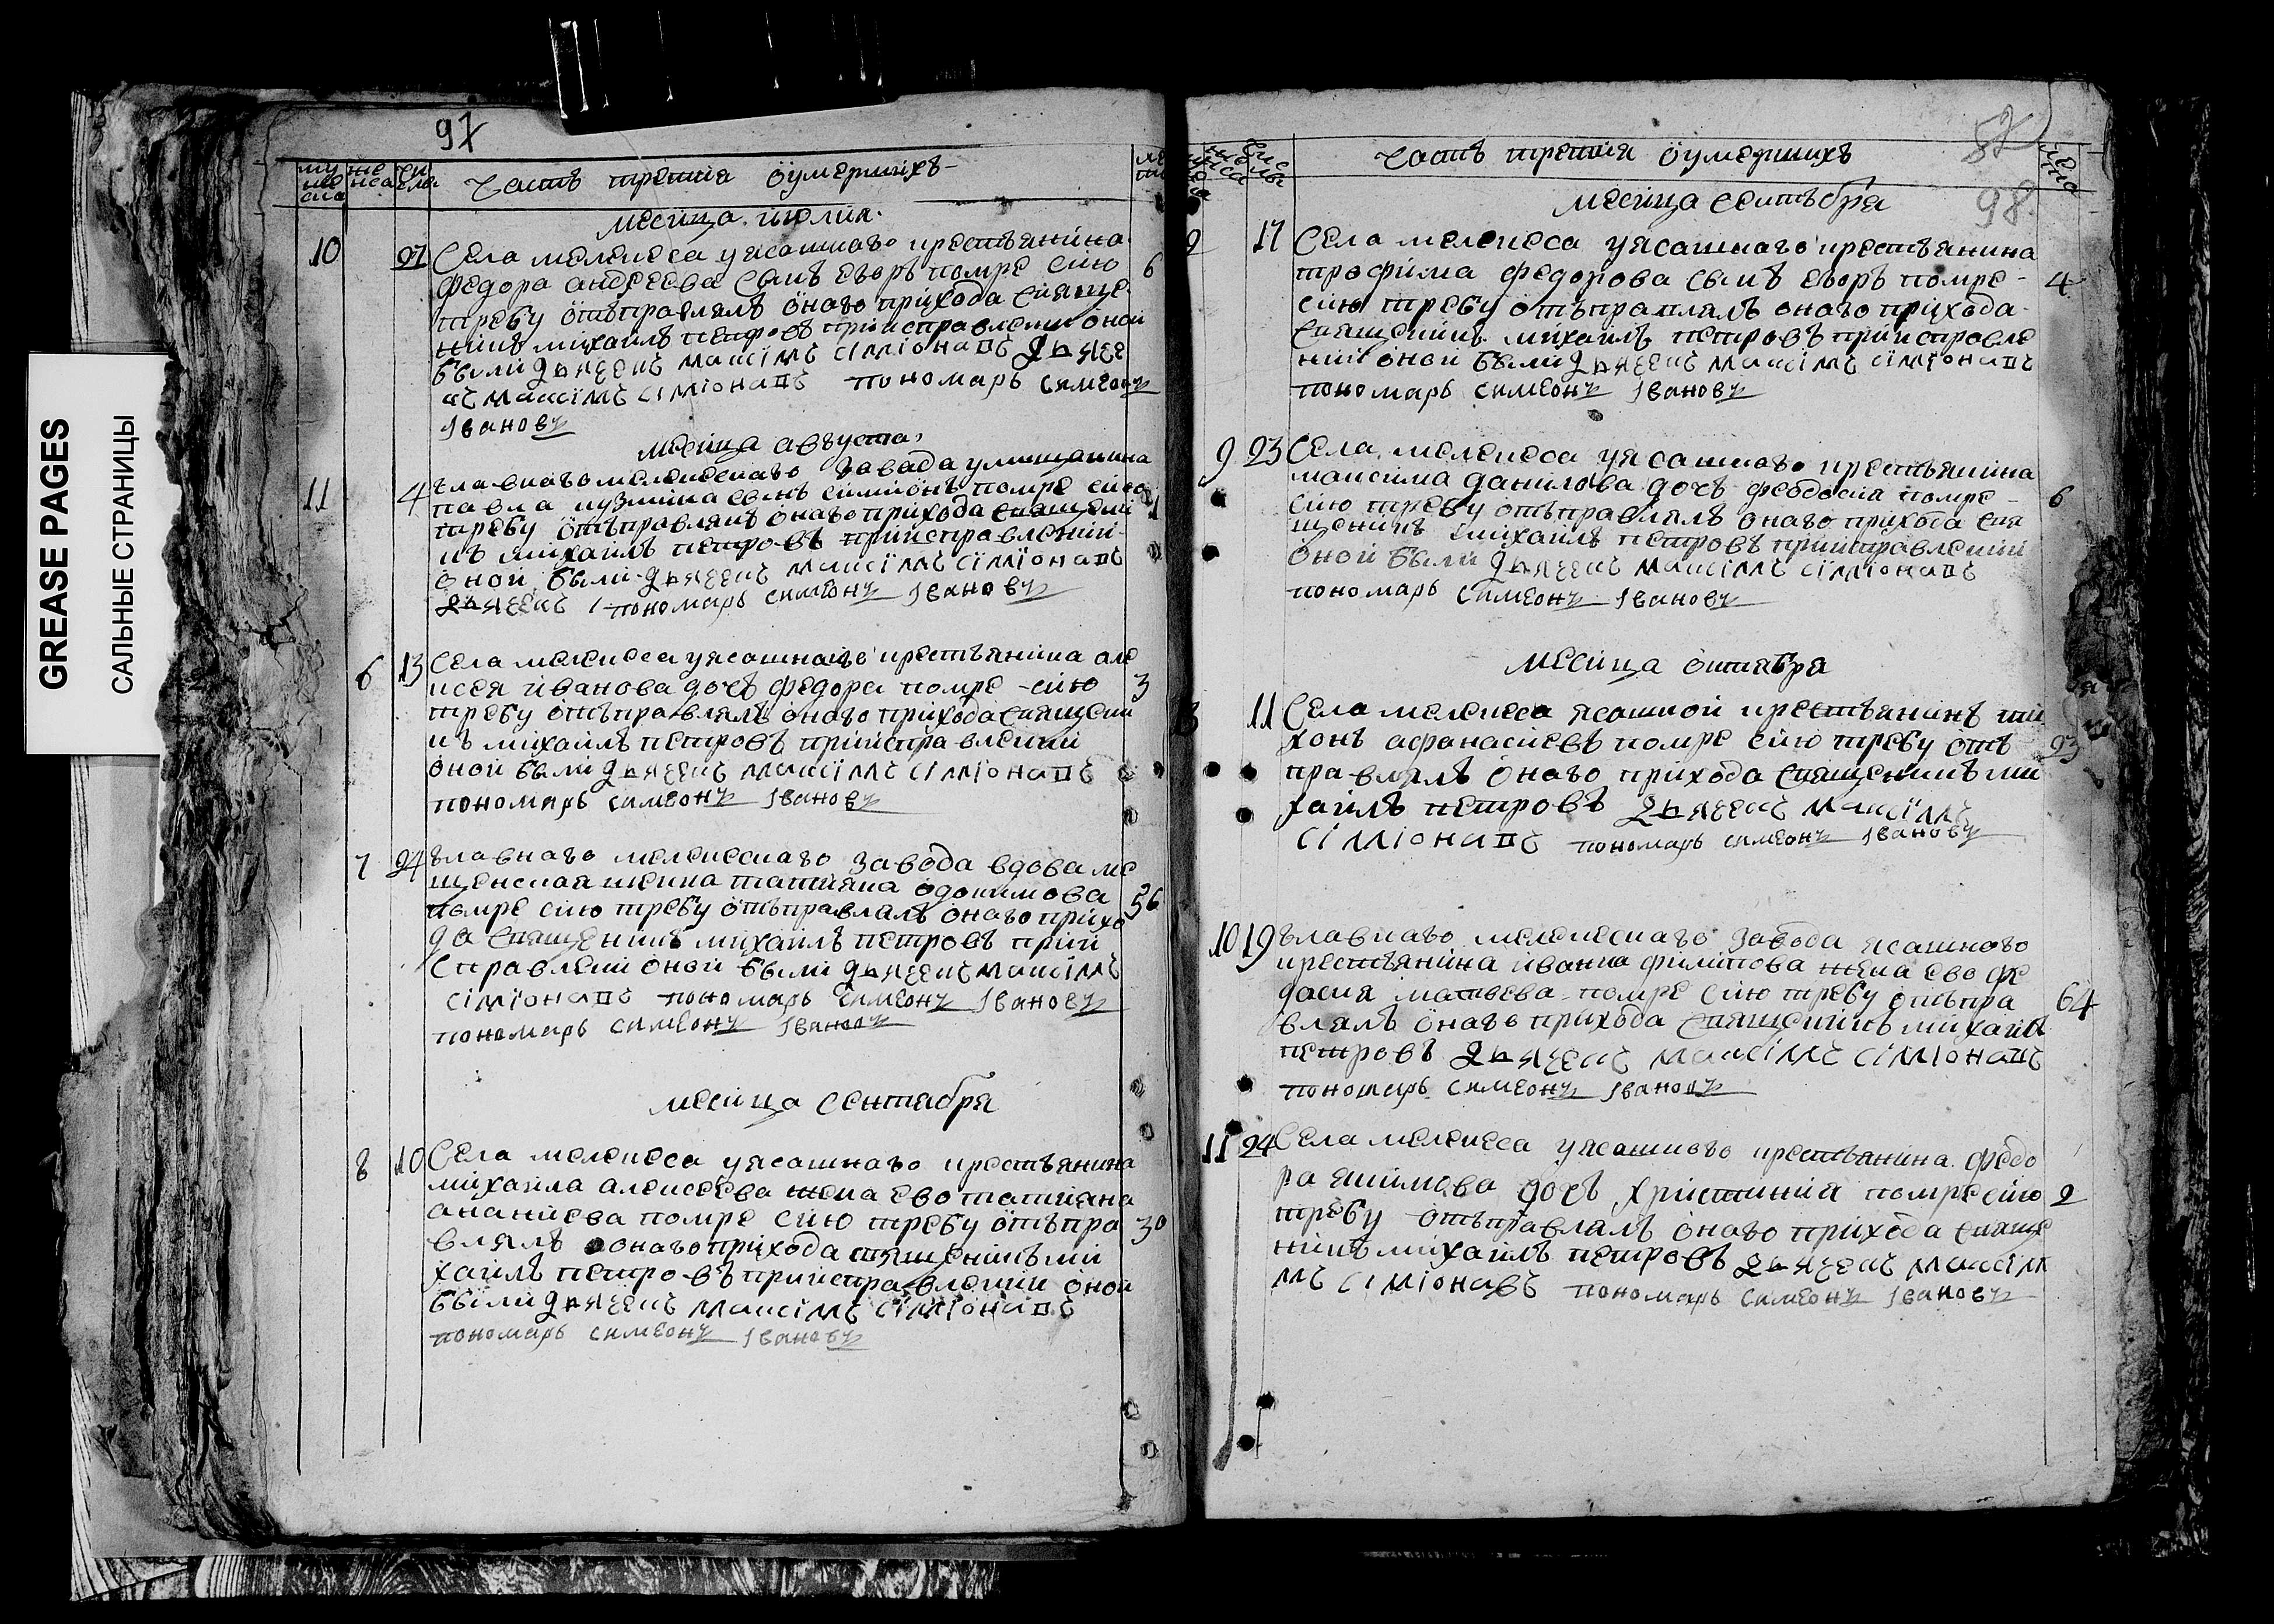 GREASE PAGES
САЛЬНЫЕ СТРАНИЦЫ
97
му же ска
же нска
чи сла
Часть третiя оумершихъ
месяца июлия
10 27 Села мелекеса уясашнаго крестьянина
федора андреева сынъ егоръ помре сию
требу отъправлялъ онаго прихода свяще
никъ михаилъ петровъ приисправлении оной
были дьячекъ максiмъ сiмiонавъ
максiмъ сiмiонавъ пономарь симеонъ
Iвановъ
месяца августа
11 4 главнаго мелекескаго завада умещанина
павла кузмина сынъ симионъ помре сию
требу отъправлялъ онаго прихода священи
къ михаилъ петровъ приисправлении
оной были дьячекъ максiмъ сiмiонавъ
дьячекъ пономарь симеонъ Iвановъ
6 13 Села мелекеса уясашнаго крестьянина але 3
ксея иванова дочь федора помре сию
требу отъправлялъ онаго прихода священи
къ михаилъ петровъ приисправлении
оной были дьячекъ максiмъ сiмiонавъ
пономарь симеонъ Iвановъ
7 24 главнаго мелекескаго завода вдова ме
щенская женка татияна
помре сию требу отъправлялъ онаго прихо 56
да священникъ михаилъ петровъ прии
справлении оной были дьячекъ максiмъ
сiмiонавъ пономарь симеонъ Iвановъ
пономарь симеонъ Iвановъ
месяца сентября
8 10 Села мелекеса уясашнаго крестьянина
михаила алексеева жена ево татияна
ананиева помре сию требу отъпра 30
влялъ онаго прихода священикъ ми
хаилъ петровъ приисправлении оной
были дьячекъ максiмъ сiмiонавъ
пономарь симеонъ Iвановъ
чи слы
Часть третия оумершихъ
лета
98
месяца сентебря
17 Села мелекеса уясашнаго крестьянина
трофима федорова сынъ егоръ помре 4
сию требу отъправлялъ онаго прихода
священикъ михаилъ петровъ приисправле
нии оной были дьячекъ максiмъ сiмiонавъ
пономарь симеонъ Iвановъ
9 23 Села мелекеса уясашнаго крестьянина
максима данилова дочь феодосия помре 6
сию требу отъправлялъ онаго прихода свя
щеникъ михаилъ петровъ приисправлении
оной были дьячекъ максiмъ сiмiонавъ
пономарь симеонъ Iвановъ
месяца октября
11 Села мелекеса ясашной крестьянинъ ти
хонъ афанасиевъ помре сию требу отъ 93
правлялъ онаго прихода священикъ ми
хаилъ петровъ дьячекъ максiмъ
сiмiонавъ пономарь симеонъ Iвановъ
10 19 главнаго мелекескаго завода ясашнаго
крестьянина ивана филипова жена ево фе
досия матвеева помре сию требу отъпра 64
влялъ онаго прихода священикъ михаилъ
петровъ дьячекъ максiмъ сiмiонавъ
пономарь симеонъ Iвановъ
11 24 Села мелекеса уясашнаго крестьянина федо
ра якимова дочь христиния помре сию 2
требу отъправлялъ онаго прихода свяще
никъ михаилъ петровъ дьячекъ максiм
мъ сiмiонавъ пономарь симеонъ Iвановъ